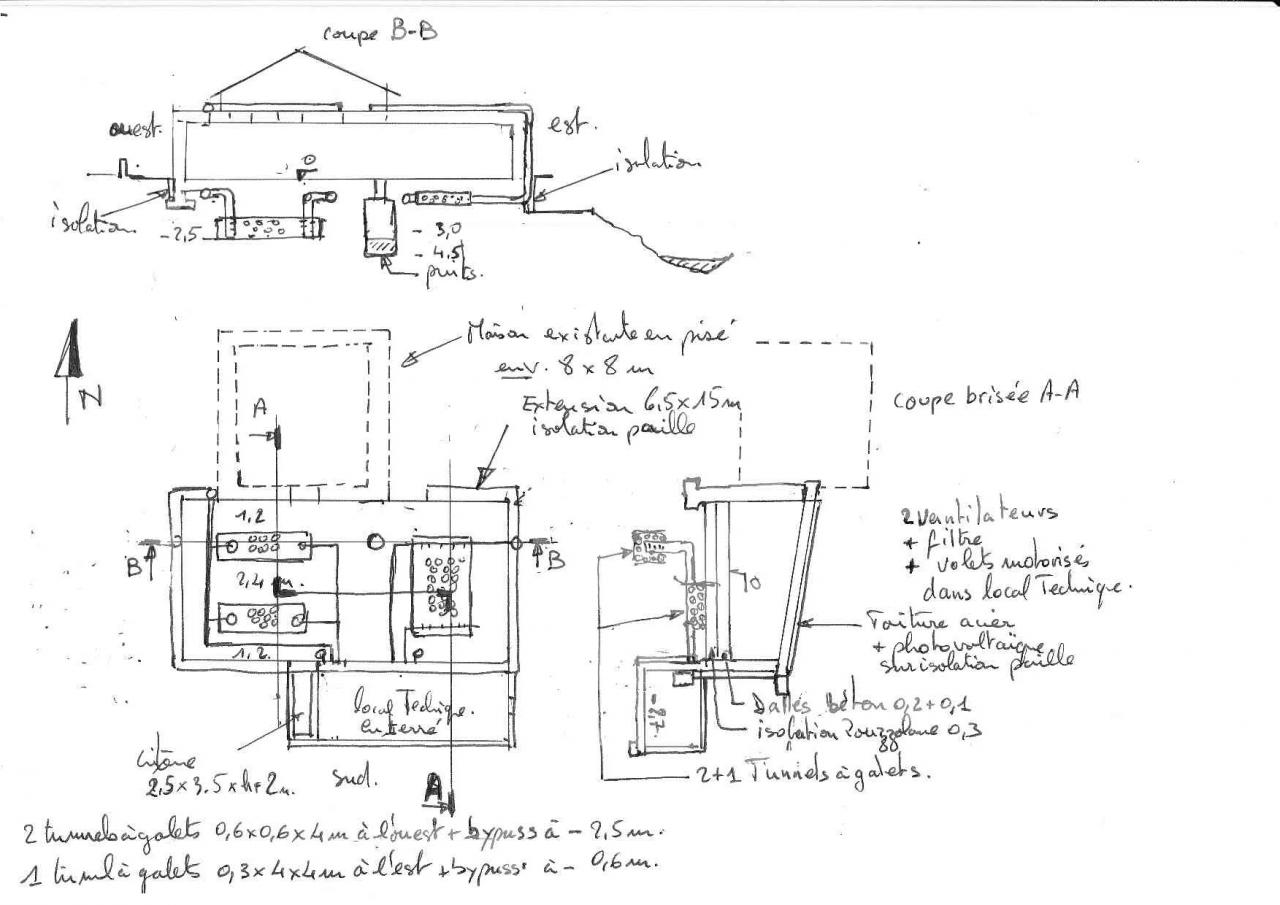 coupe B-B
ouest.
est.
0
isolation
isolation
-2,5
- 3,0
- 4,5
puits.
N
Maison existante en pisé
env. 8 x 8 m
Extension 6,5x15m
isolation paille
coupe brisée A-A
A
1,2
B
B
2,4 m.
1,2.
0
2 ventilateurs
+ filtre
+ volets motorisés
dans local Technique.
Toiture acier
+ photovoltaïque
sur isolation paille
local Technique.
Enterré
-2,7.
Dalles béton 0,2+0,1
isolation Pouzzolane 0,3
2+1 Tunnels à galets.
Citerne
2,5x3.5xh=2m.
sud.
A
2 tunnels à galets 0,6x0,6x4m à l'ouest + bypass à - 2,5m.
1 tunl à galets 0,3x4x4m à l'est + bypass à - 0,6m.